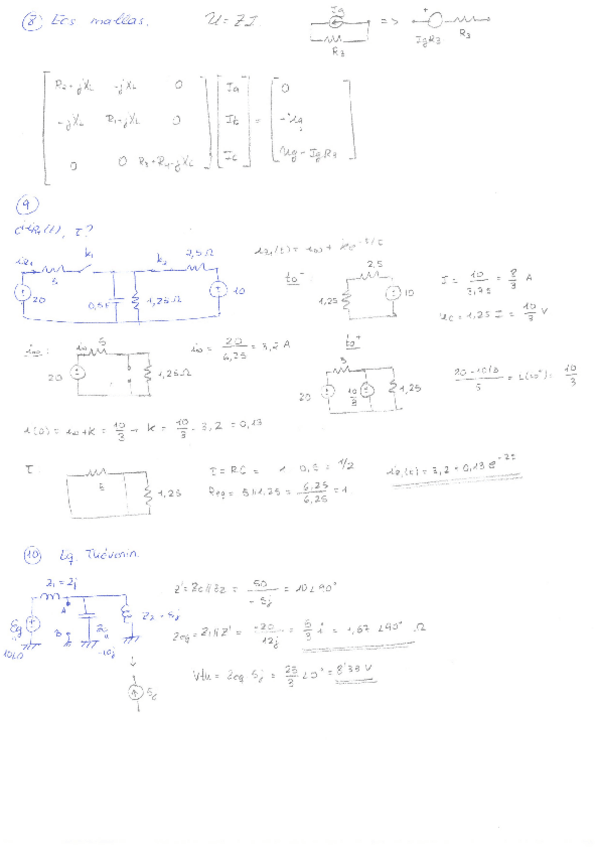 8 Ecs mallas. U = Z I
Ig => + IgR3 R3
R3
R2-jXL -jXL 0 Ia 0
-jXL R1-jXL 0 Ib = -Ug
0 0 R3+R4-jXL Ic Ug-IgR3
9
iR1(t), τ?
iR1 5 k1 k2 2,5Ω
20 0,5F 1,25Ω 10
iR1(t) = i∞ + k e^-t/τ
to-: 2,5 1,25 10
I = 10/3,75 = 8/3 A
Uc = 1,25 I = 10/3 V
i∞: i∞ 5 20 1,25Ω
i∞ = 20/6,25 = 3,2 A
to+ 5 20 10/3 1,25
20-10/3 / 5 = i(to+) = 10/3
i(0) = i∞+k = 10/3 → k = 10/3 - 3,2 = 0,13
τ 1,25
τ = RC = 1 0,5 = 1/2
Req = 5//1,25 = 6,25/6,25 = 1
iR1(t) = 3,2 + 0,13 e^-2t
10 Eq. Thévenin.
Z1 = 2j
A B Eg Zc -10j Z2 = 5j
Z' = Zc//Z2 = 50/-5j = 10∠90°
Zeq = Z1//Z' = -20/12j = 5/3 j = 1,67 ∠90° Ω
Vth = Zeq 5j = 25/3 ∠0° = 8'33 V